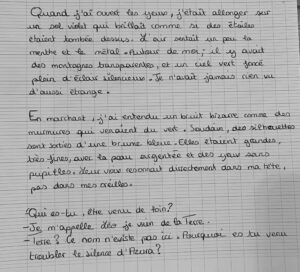 Quand j'ai ouvert les yeux, j'était allonger sur
un sol violet qui brillait comme si des étoiles
étaient tombée dessus. L'air sentait un peu la
menthe et le métal. Autour de moi, il y avait
des montagnes transparentes, et un ciel vert foncé
plein d'éclair silencieux. Je n'avait jamais rien vu
d'aussi étrange.
En marchant, j'ai entendu un bruit bizarre comme des
murmures qui venaient du vent. Soudain, des silhouettes
sont sorties d'une brume bleue. Elles étaient grandes,
très fines, avec la peau argentée et des yeux sans
pupilles. Leur voix resonnait directement dans ma tête,
pas dans mes oreilles.
-Qui es-tu, être venu de loin?
-Je m'appelle dés je vien de la Terre.
-Terre? Ce nom n'éxiste pas ici. Pourquoi es tu venu
troubler le silence d'Azura?